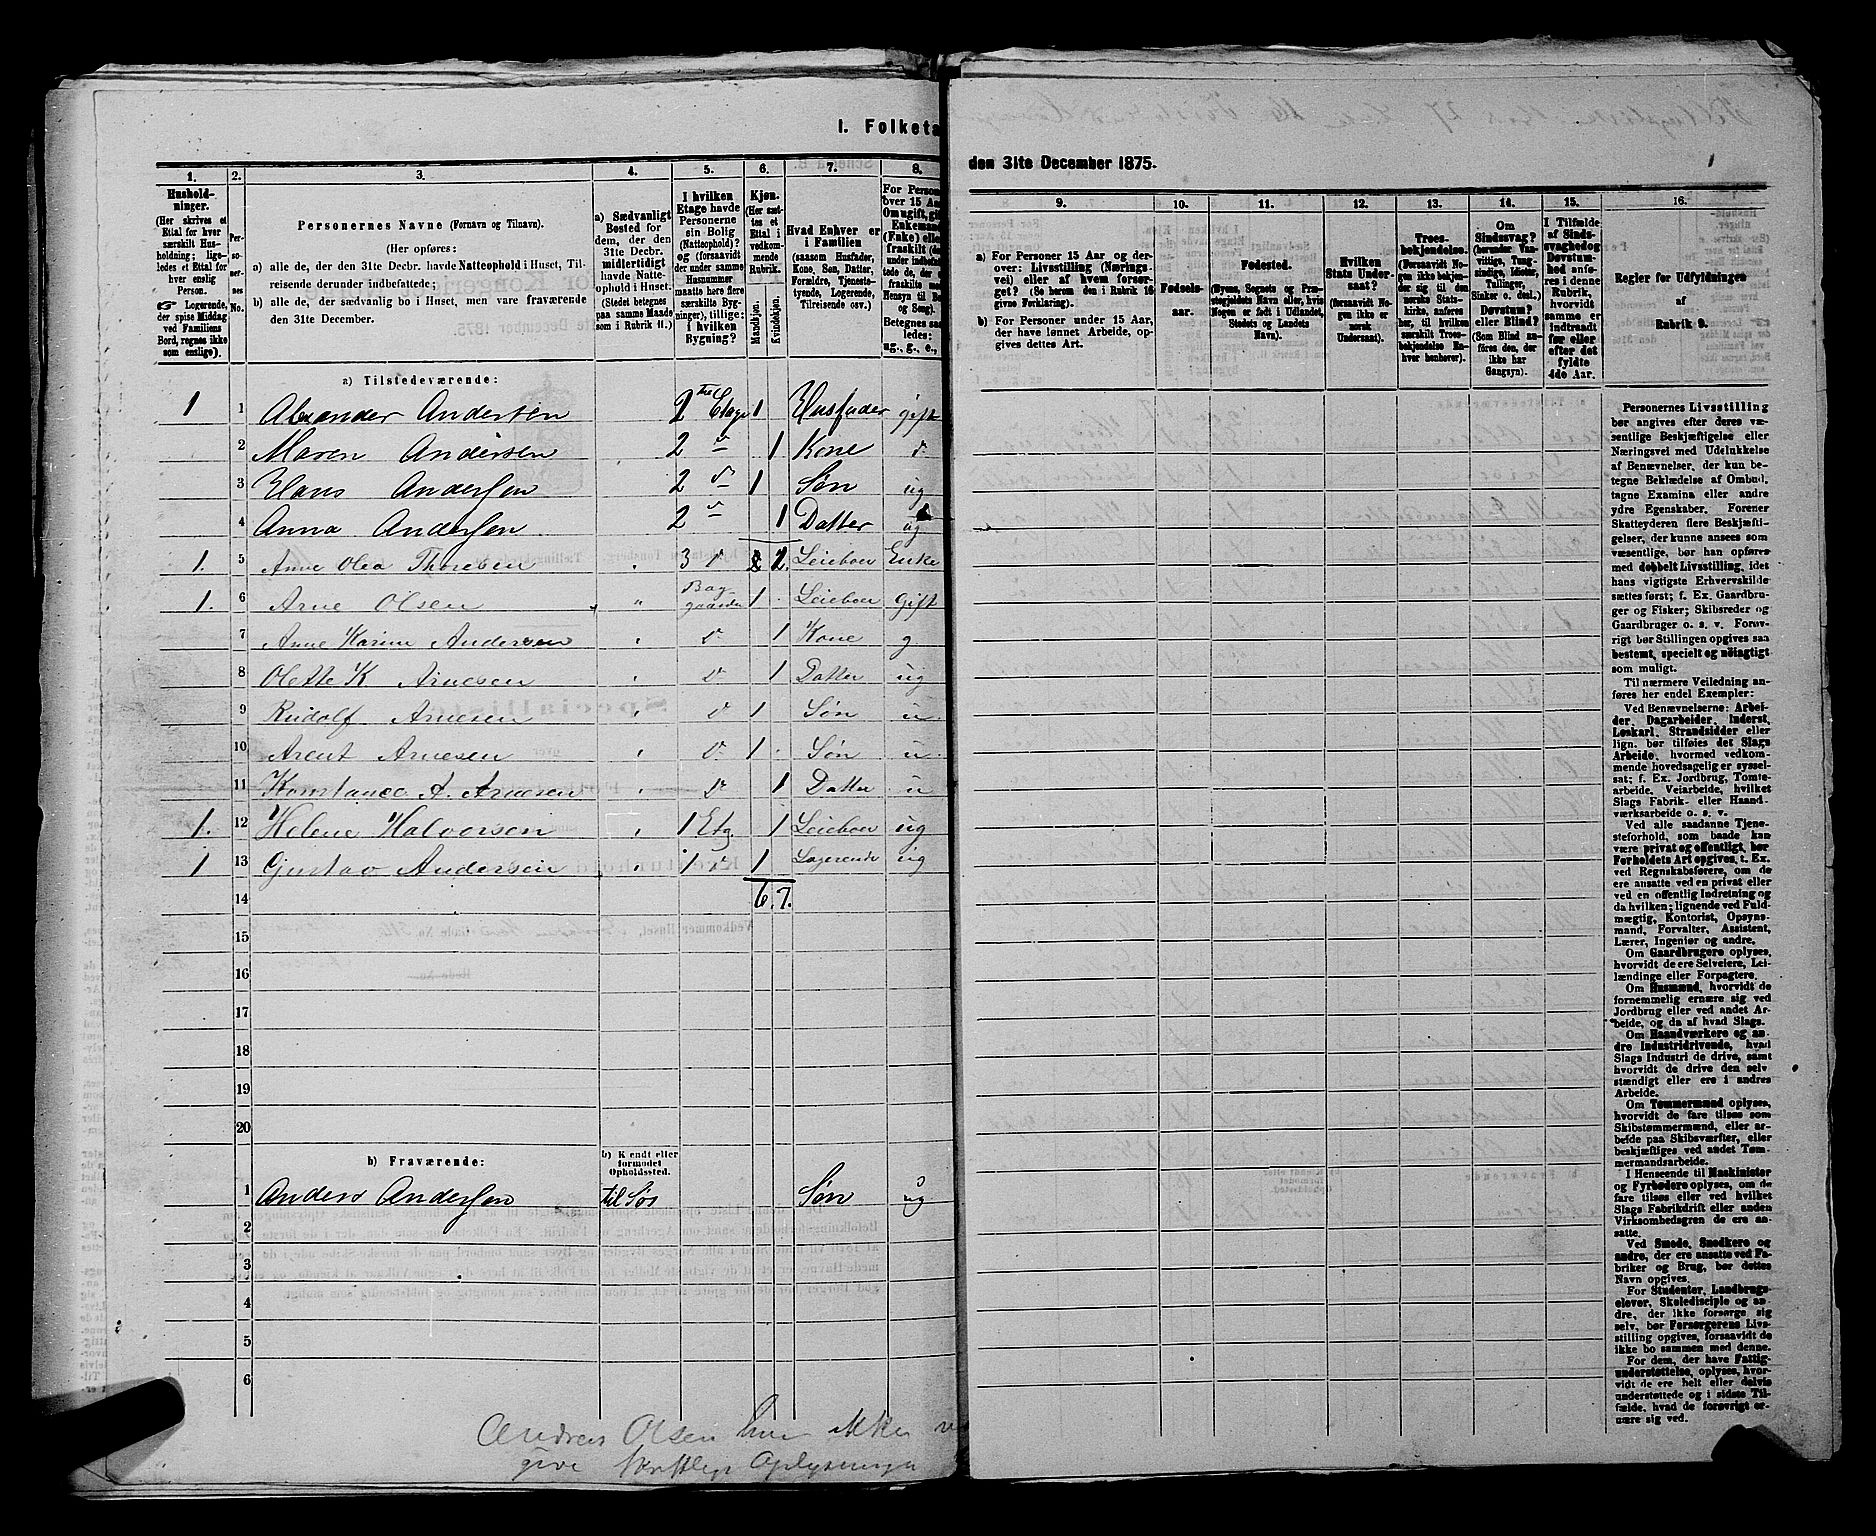 I. Folketæ
den 31te December 1875.
1
1.
Hushold-
ninger.
(Her skrives et
Ettal for hver
særskilt Hus-
holdning; lige-
ledes et Ettal for
hver enslig
Person.
Logerende,
der spise Middag
ved Familiens
Bord, regnes ikke
som enslige).
2.
Per-
so-
ner-
nes
No.
3.
Personernes Navne (Fornavn og Tilnavn).
(Her opføres:
a) alle de, der den 31te Decbr. havde Natteophold i Huset, Til-
reisende derunder indbefattede;
b) alle de, der sædvanlig bo i Huset, men vare fraværende
den 31te December.
4.
a) Sædvanligt
Bosted for
dem, der den
31te Decbr.
midlertidigt
havde Natte-
ophold i Huset.
(Stedet betegnes
paa samme Maade
som i Rubrik 11.)
5.
I hvilken
Etage havde
Personerne
sin Bolig
(Natteophold)?
og (forsaavidt
der under samme
Husnummer
maatte høre flere
særskilte Byg-
ninger), tillige:
I hvilken
Bygning?
6.
Kjøn.
(Her sæt-
tes et
Ettal i
vedkom-
mende
Rubrik.
Mandkjøn.
Kvindekjøn.
7.
Hvad Enhver er
i Familien
(saasom Husfader,
Kone, Søn, Datter,
Forældre, Tjeneste-
tyende, Logerende,
Tilreisende osv.)
8.
For Person
over 15 Aa
Om ugift, gif
Enkemand
(Enke) elle
fraskilt
Betegnes saa
ledes:
ug., g., e.,
9.
a) For Personer 15 Aar og der-
over: Livsstilling (Nærings-
vei) eller af hvem forsør-
get? (Se herom den i Rubrik 16
givne Forklaring).
b) For Personer under 15 Aar,
der have lønnet Arbeide, op-
gives dettes Art.
10.
Fødsels-
aar.
11.
Fødested.
(Byens, Sognets og Præ-
stegjeldets Navn eller, hvis
Nogen er født i Udlandet,
Stedets og Landets
Navn).
12.
Hvilken
Stats Under-
saat?
(forsaavidt No-
gen ikke er
norsk
Undersaat).
13.
Troes-
bekjendelse.
(Forsaavidt No-
gen ikke bekjen-
der sig til den
norske Stats-
kirke, anføres
her, til hvilken
særskilt Troes-
bekjendelse En-
hver henhører).
14.
Om
Sindssvag?
(herunder Van-
vittige, Tung-
sindige, Idioter,
Tullinger,
Sinker o. desl.)
Døvstum?
eller Blind?
(Som Blind an-
føres den, der
ikke har
Gangsyn).
15.
I Tilfælde
af Sinds-
svaghed og
Døvstum-
hed anfø-
res i denne
Rubrik,
hvorvidt
samme er
indtraadt
før eller
efter det
fyldte
4de Aar.
16.
Regler for Udfyldningen
af
Rubrik 9.
a) Tilstedeværende:
1 1 Alexander Andersen 2 den Etage 1 Husfader gift
2 Maren Andersen 2 d 1 Kone d
3 Hans Andersen 2 d 1 Søn ug
4 Anna Andersen 2 d 1 Datter ug
1. 5 Anne Olea Thoresen 3 d Leieboer Enke
1. 6 Arne Olsen " Bag-
gaarden 1 Leieboer Gift
7 Anne Karine Andersen d 1 Kone g
8 Olette K Arnesen d 1 Datter ug
9 Rudolf Arnesen d 1 Søn u
10 Arent Arnesen d 1 Søn u
11 Konstance A. Arnesen d 1 Datter u
1. 12 Helene Halvorsen 1 Etg 1 Leieboer ug
1 13 Gustav Andersen 1 d 1 Logerende ug
14 6. 7.
15
16
17
18
19
20
b) Fraværende:
b) Kjendt eller
formodet
Opholdssted.
1 Anders Andersen til Søs Søn ug
2
3
4
5
6
Andreas Olsen kan ikke
give skriftlige Oplysninger
Personernes Livsstilling
bør angives efter deres væ-
sentlige Beskjæftigelse eller
Næringsvei med Udelukkelse
af Benævnelser, der kun be-
tegne Beklædelse af Ombud,
tagne Examina eller andre
ydre Egenskaber. Forener
Skatteyderen flere Beskjæfti-
gelser, der kunne ansees som
væsentlige, bør han opføres
med dobbelt Livsstilling, idet
hans vigtigste Erhvervskilde
sættes først; f. Ex. Gaardbru-
ger og Fisker; Skibsreder og
Gaardbruger o. s. v. Forøv-
rigt bør Stillingen opgives saa
bestemt, specielt og nøiagtigt
som muligt.
Til nærmere Veiledning an-
føres her endel Exempler:
Ved Benævnelserne: Arbei-
der, Dagarbeider, Inderst,
Løskarl, Strandsidder eller
lign. bør tilføies det Slags
Arbeide, hvormed vedkom-
mende hovedsagelig er syssel-
sat; f. Ex. Jordbrug, Tomte-
arbeide, Veiarbeide, hvilket
Slags Fabrik- eller Haand-
værksarbeide o. s. v.
Ved alle saadanne Tjene-
steforhold, som baade kan
være privat og offentligt, bør
Forholdets Art opgives, t. Ex.
ved Regnskabsførere, om de
ere ansatte ved en privat eller
ved en offentlig Indretning og
da hvilken; lignende ved Fuld-
mægtig, Kontorist, Opsyns-
mand, Forvalter, Assistent,
Lærer, Ingeniør og andre.
Om Gaardbrugere oplyses,
hvorvidt de ere Selveiere, Lei-
lændinge eller Forpagtere.
Om Husmænd, hvorvidt de
fornemmelig ernære sig ved
Jordbrug eller ved andet Ar-
beide, og da af hvad Slags.
Om Haandværkere og an-
dre Industridrivende, hvad
Slags Industri de drive, samt
hvorvidt de drive den selv-
stændigt eller ere i andres
Arbeide.
Om Tømmermænd oplyses,
hvorvidt de fare tilsøs som
Skibstømmermænd, eller ar-
beide paa Skibsværfter, eller
beskjæftiges ved andet Tøm-
mermandsarbeide.
I Henseende til Maskinister
og Fyrbødere oplyses, om de
fare tilsøs eller ved hvilket
Slags Fabrikdrift eller anden
Virksomhedsgren de ere an-
satte.
Ved Smede, Snedkere og
andre, der ere ansatte ved Fa-
briker og Brug, bør dettes
Navn opgives.
For Studenter, Landbrugs-
elever, Skoledisciple og an-
dre, der ikke forsørge sig
selv, bør Forsørgerens Livs-
stilling opgives, forsaavidt de
ikke bo sammen med denne.
For dem, der have Fattig-
understøttelse, oplyses, hvor-
vidt de ere helt eller delvis
understøttede og i sidste Til-
fælde, hvad de forøvrigt er-
nære sig ved.